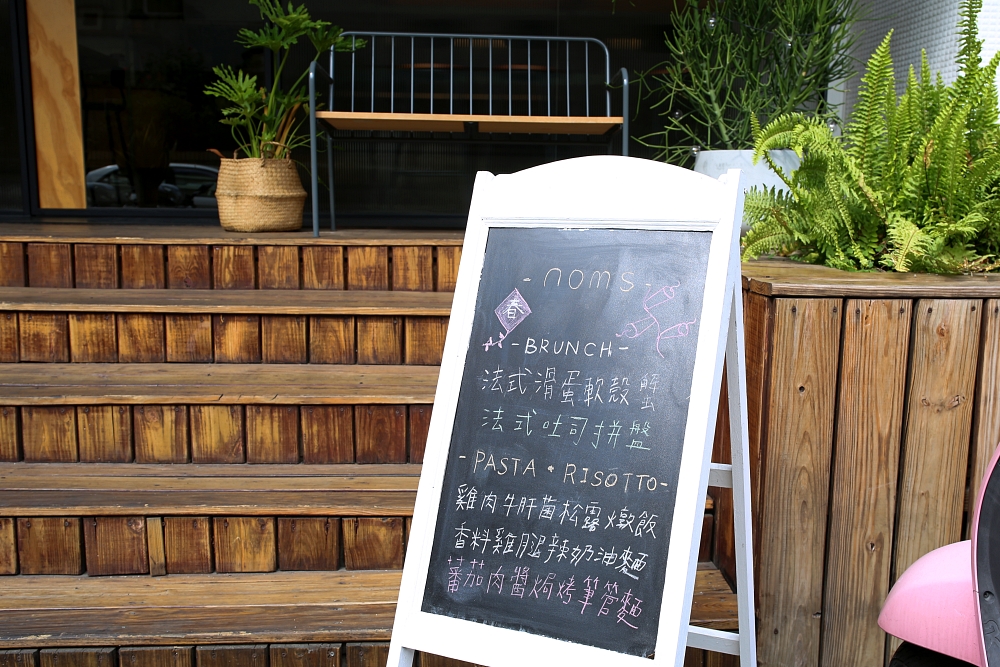 - noms -
春
- BRUNCH -
法式滑蛋軟殼蟹
法式吐司拼盤
- PASTA • RISOTTO -
雞肉牛肝菌松露燉飯
香料雞腿辣奶油麵
蕃茄肉醬焗烤筆管麵